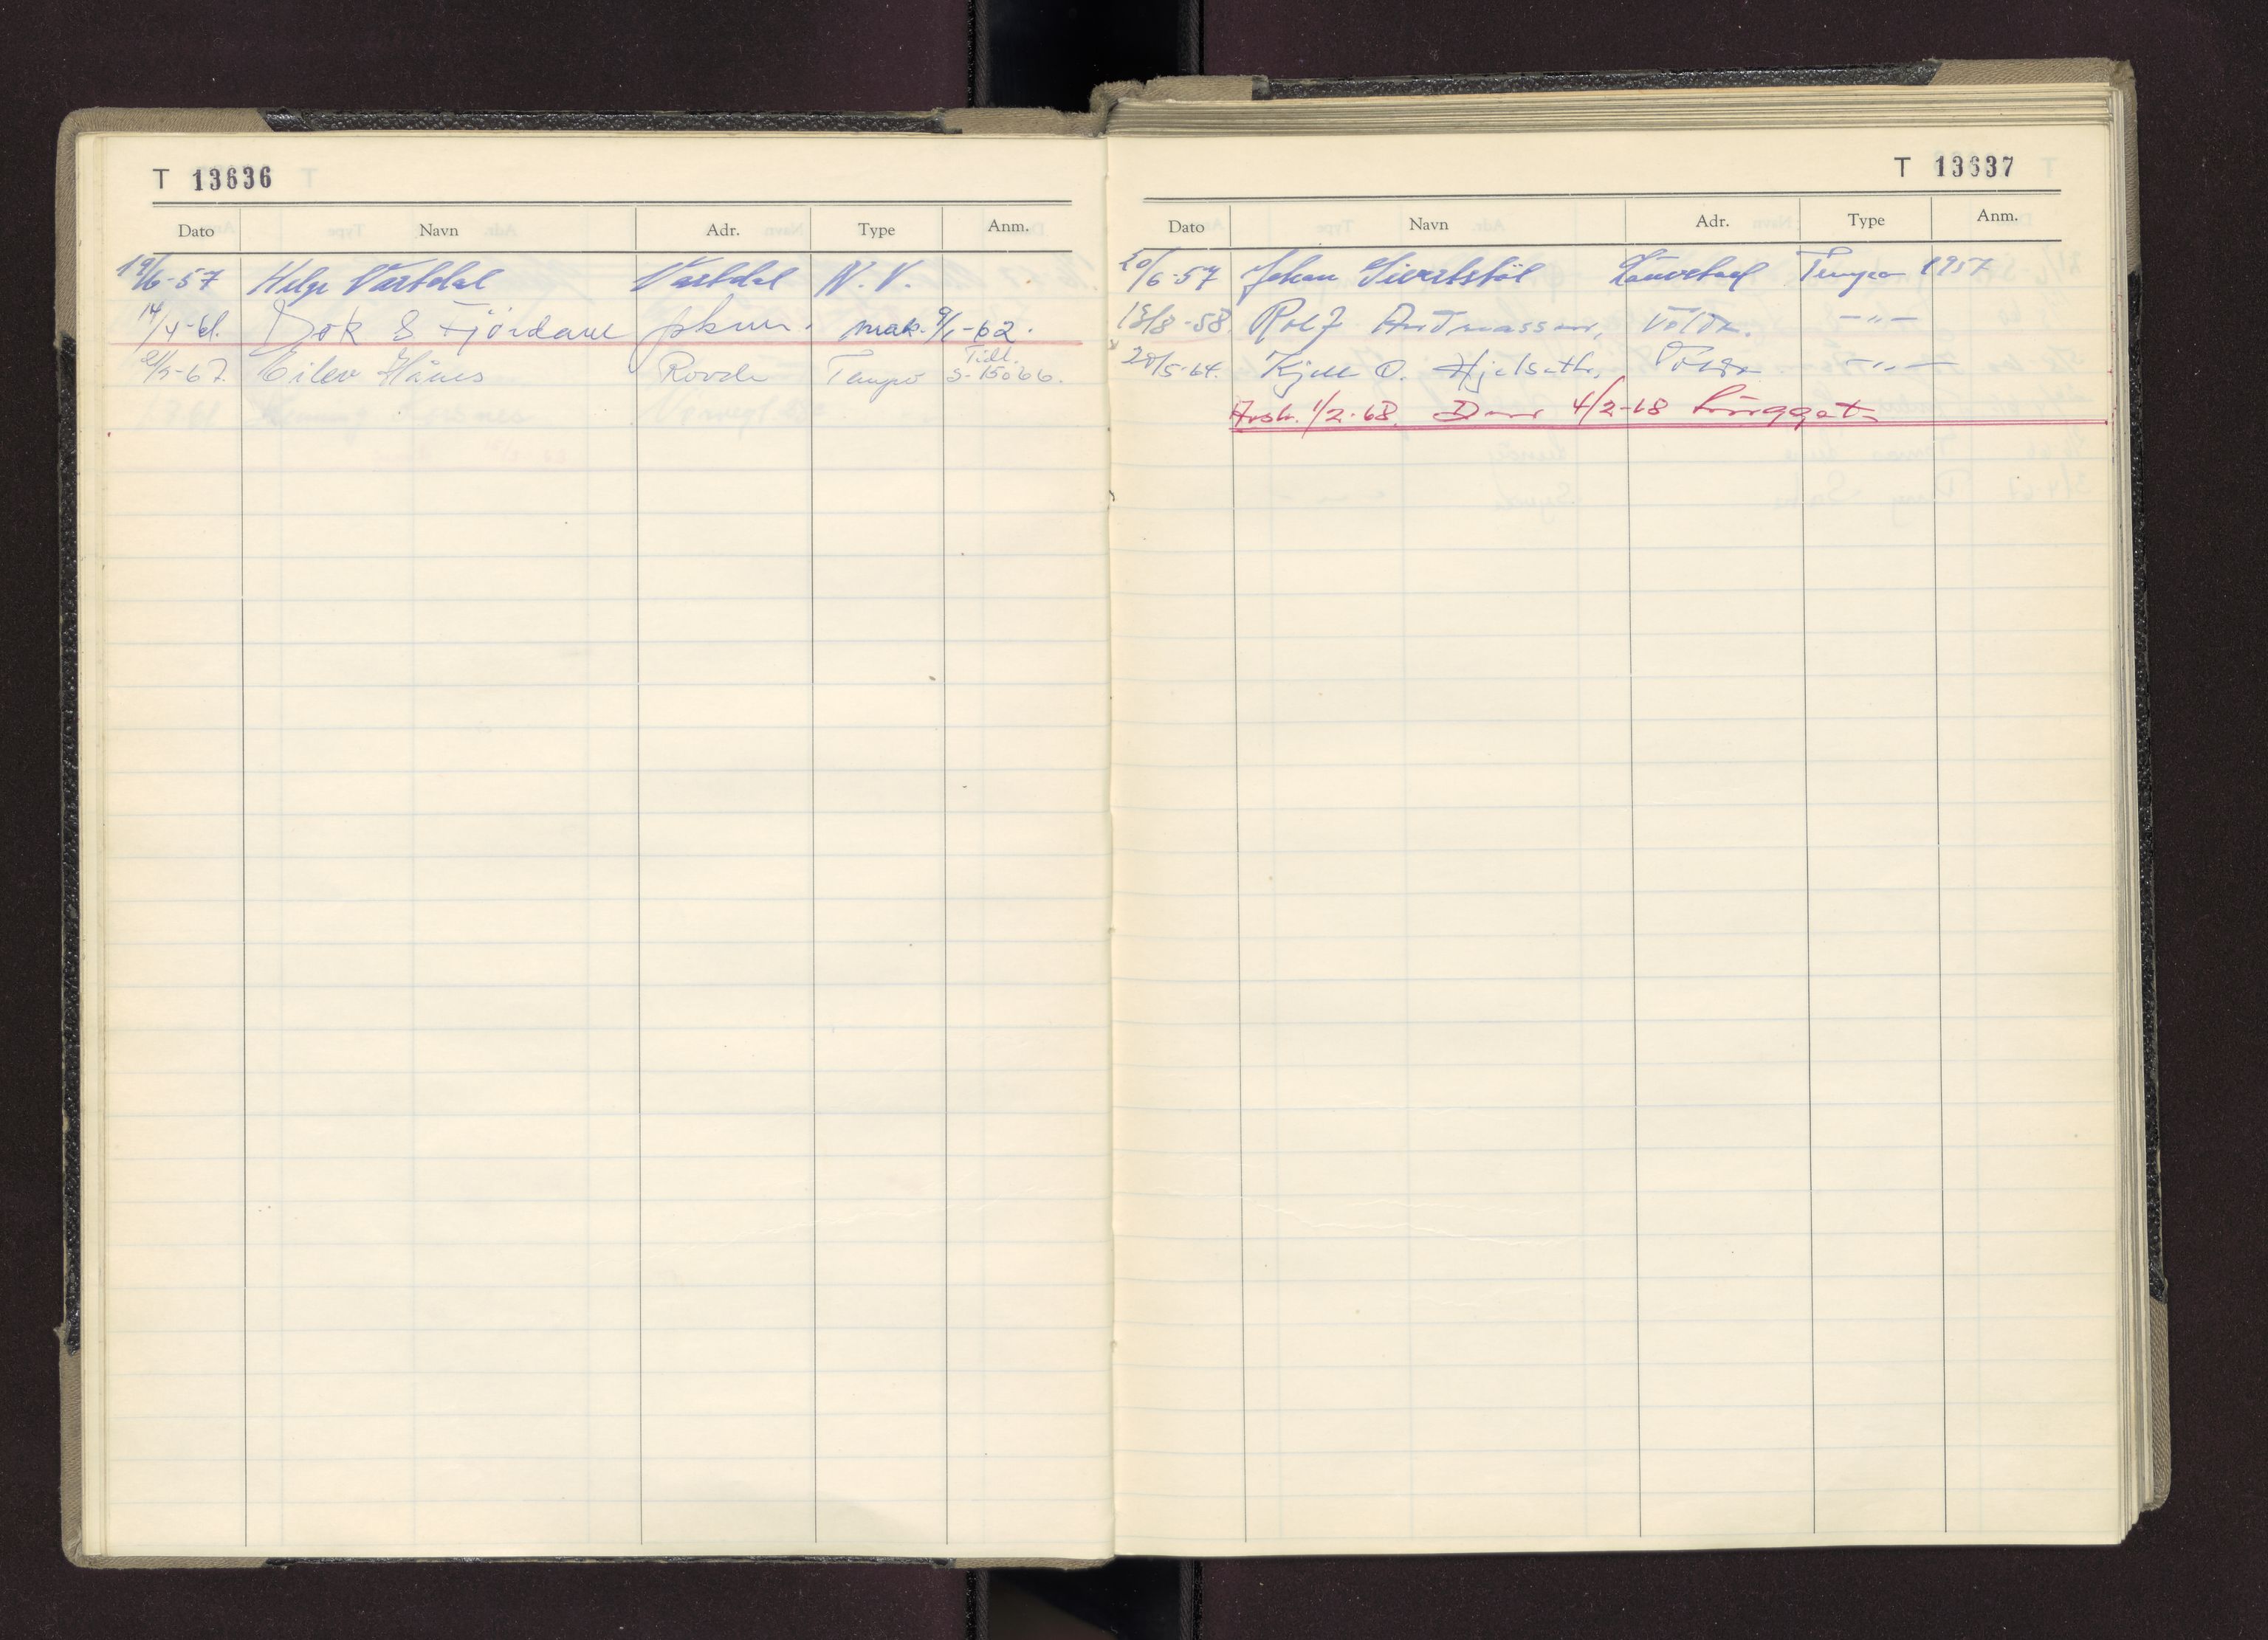 T 13636
Dato Navn Adr. Type Anm.
19/6-57 Helge Vartdal Vartdal N.V.
14/4-61. Fjördane mak. 9/1-62.
21/5-67. Eilev Hånes Rovde Tempo Tidl. S-15066.
T 13637
Dato Navn Adr. Type Anm.
20/6-57 Johan Sivertstøl Tempo 1957
13/8-58. Rolf Andreassen, Volda. -"-
20/5-64. Kjell O. Hjelseth, Volda -"-
Avsk. 1/2-68. 4/2-68 hugget